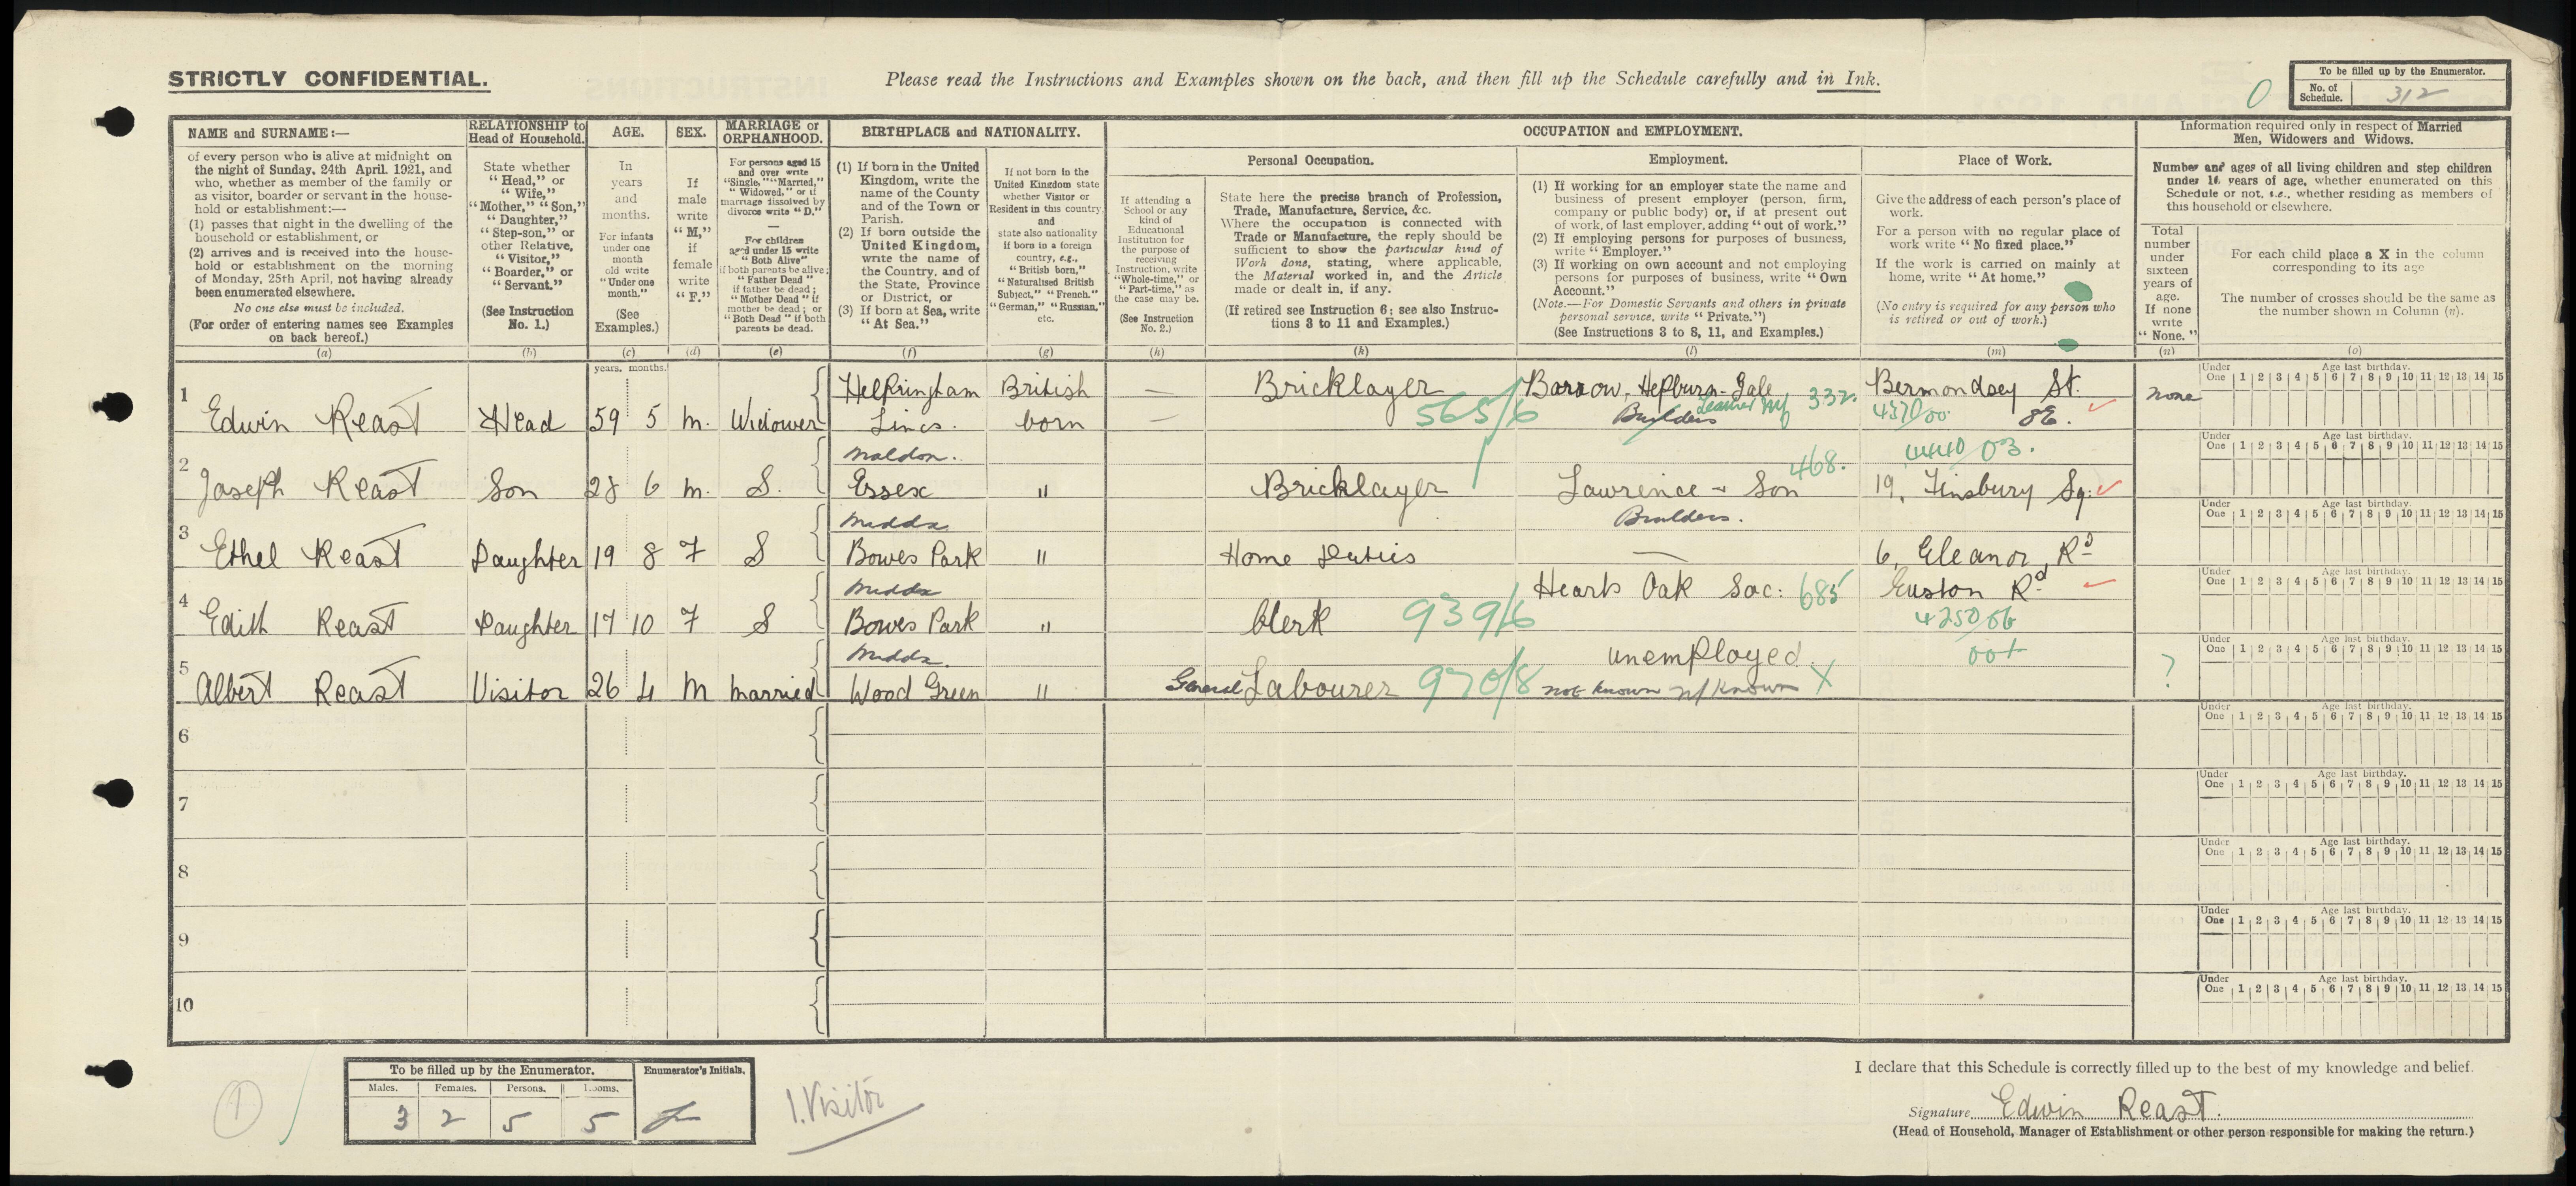 STRICTLY CONFIDENTIAL.
Please read the Instructions and Examples shown on the back, and then fill up the Schedule carefully and in Ink.
0
To be filled up by the Enumerator.
No. of Schedule. 312
NAME and SURNAME:—
of every person who is alive at midnight on
the night of Sunday, 24th April, 1921, and
who, whether as member of the family or
as visitor, boarder or servant in the house-
hold or establishment:—
(1) passes that night in the dwelling of the
household or establishment, or
(2) arrives and is received into the house-
hold or establishment on the morning
of Monday, 25th April, not having already
been enumerated elsewhere.
No one else must be included.
(For order of entering names see Examples
on back hereof.)
(a)
RELATIONSHIP to
Head of Household.
State whether
"Head," or
"Wife,"
"Mother," "Son,"
"Daughter,"
"Step-son," or
other Relative,
"Visitor,"
"Boarder," or
"Servant."
(See Instruction
No. 1.)
(b)
AGE.
In
years
and
months.
For infants
under one
month
old write
"Under one
month."
(See
Examples.)
(c)
SEX.
If
male
write
"M,"
if
female
write
"F."
(d)
MARRIAGE or
ORPHANHOOD.
For persons aged 15
and over write
"Single," "Married,"
"Widowed," or if
marriage dissolved by
divorce write "D."
—
For children
aged under 15 write
"Both Alive"
if both parents be alive;
"Father Dead"
if father be dead;
"Mother Dead" if
mother be dead; or
"Both Dead" if both
parents be dead.
(e)
BIRTHPLACE and NATIONALITY.
(1) If born in the United
Kingdom, write the
name of the County
and of the Town or
Parish.
(2) If born outside the
United Kingdom,
write the name of
the Country, and of
the State, Province
or District, or
(3) If born at Sea, write
"At Sea."
(f)
If not born in the
United Kingdom state
whether Visitor or
Resident in this country,
and
state also nationality
if born in a foreign
country, e.g.,
"British born,"
"Naturalised British
Subject," "French,"
"German," "Russian,"
etc.
(g)
OCCUPATION and EMPLOYMENT.
If attending a
School or any
kind of
Educational
Institution for
the purpose of
receiving
Instruction, write
"Whole-time," or
"Part-time," as
the case may be.
(See Instruction
No. 2.)
(h)
Personal Occupation.
State here the precise branch of Profession,
Trade, Manufacture, Service, &c.
Where the occupation is connected with
Trade or Manufacture, the reply should be
sufficient to show the particular kind of
Work done, stating, where applicable,
the Material worked in, and the Article
made or dealt in, if any.
(If retired see Instruction 6; see also Instruc-
tions 3 to 11 and Examples.)
(k)
Employment.
(1) If working for an employer state the name and
business of present employer (person, firm,
company or public body) or, if at present out
of work, of last employer, adding "out of work."
(2) If employing persons for purposes of business,
write "Employer."
(3) If working on own account and not employing
persons for purposes of business, write "Own
Account."
(Note.—For Domestic Servants and others in private
personal service, write "Private.")
(See Instructions 3 to 8, 11, and Examples.)
(l)
Place of Work.
Give the address of each person's place of
work.
For a person with no regular place of
work write "No fixed place."
If the work is carried on mainly at
home, write "At home."
(No entry is required for any person who
is retired or out of work.)
(m)
Information required only in respect of Married
Men, Widowers and Widows.
Number and ages of all living children and step children
under 16 years of age, whether enumerated on this
Schedule or not, i.e., whether residing as members of
this household or elsewhere.
Total
number
under
sixteen
years of
age.
If none
write
"None."
(n)
For each child place a X in the column
corresponding to its age
The number of crosses should be the same as
the number shown in Column (n).
(o)
years. months.
1 Edwin Reast Head 59 5 M. Widower Helpringham Lincs. British born — Bricklayer 565/6 Barrow, Hepburn-Gale Builders Leather Mf 332. Bermondsey St. SE. 437/00 none
Under One Age last birthday. 1 2 3 4 5 6 7 8 9 10 11 12 13 14 15
2 Joseph Reast Son 28 6 M. S. Maldon. Essex " Bricklayer Lawrence & Son Builders. 468. 19, Finsbury Sq: 4440/03.
Under One Age last birthday. 1 2 3 4 5 6 7 8 9 10 11 12 13 14 15
3 Ethel Reast Daughter 19 8 F S Middx Bowes Park " Home Duties — 6, Eleanor Rd
Under One Age last birthday. 1 2 3 4 5 6 7 8 9 10 11 12 13 14 15
4 Edith Reast Daughter 17 10 F S Middx Bowes Park " Clerk 939/6 Hearts Oak Soc: 685 Euston Rd 4250/06
Under One Age last birthday. 1 2 3 4 5 6 7 8 9 10 11 12 13 14 15
5 Albert Reast Visitor 26 4 M Married Middx. Wood Green " General Labourer 970/8 unemployed. not known n/known X 00+ ?
Under One Age last birthday. 1 2 3 4 5 6 7 8 9 10 11 12 13 14 15
6
Under One Age last birthday. 1 2 3 4 5 6 7 8 9 10 11 12 13 14 15
7
Under One Age last birthday. 1 2 3 4 5 6 7 8 9 10 11 12 13 14 15
8
Under One Age last birthday. 1 2 3 4 5 6 7 8 9 10 11 12 13 14 15
9
Under One Age last birthday. 1 2 3 4 5 6 7 8 9 10 11 12 13 14 15
10
Under One Age last birthday. 1 2 3 4 5 6 7 8 9 10 11 12 13 14 15
1
To be filled up by the Enumerator.
Enumerator's Initials.
Males. Females. Persons. Rooms.
3 2 5 5
1. Visitor
I declare that this Schedule is correctly filled up to the best of my knowledge and belief.
Signature Edwin Reast.
(Head of Household, Manager of Establishment or other person responsible for making the return.)